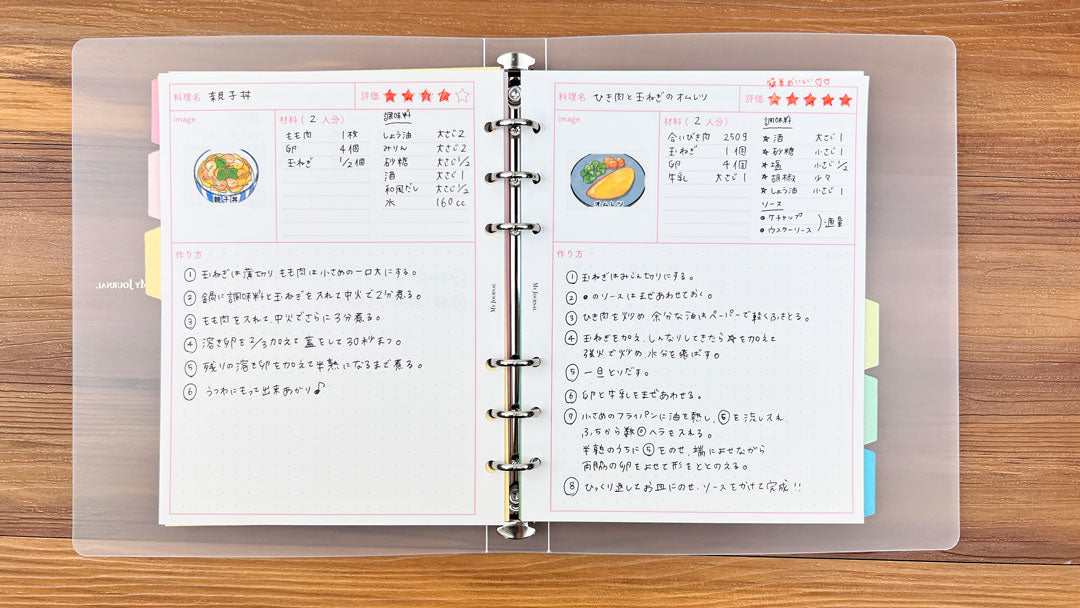 料理名 親子丼
評価 ★★★★☆
image
親子丼
材料( 2 人分)
もも肉 1枚
卵 4個
玉ねぎ 1/2個
調味料
しょう油 大さじ2
みりん 大さじ2
砂糖 大さじ1/2
酒 大さじ1
和風だし 大さじ1/2
水 160cc
作り方
① 玉ねぎは薄切り、もも肉は小さめの一口大にする。
② 鍋に調味料と玉ねぎを入れて中火で2分煮る。
③ もも肉を入れて、中火でさらに3分煮る。
④ 溶き卵を2/3加えて蓋をして30秒まつ。
⑤ 残りの溶き卵を加えて半熟になるまで煮る。
⑥ うつわにもって出来あがり♪
MY JOURNAL
MY JOURNAL
MY JOURNAL
簡単おいしい♡♡
料理名 ひき肉と玉ねぎのオムレツ
評価 ★★★★★
image
オムレツ
材料( 2 人分)
合いびき肉 250g
玉ねぎ 1個
卵 4個
牛乳 大さじ1
調味料
★酒 大さじ1
★砂糖 小さじ1
★塩 小さじ1/2
★胡椒 少々
★しょう油 小さじ1
ソース
●ケチャップ
●ウスターソース
)適量
作り方
① 玉ねぎはみじん切りにする。
② ●のソースはまぜあわせておく。
③ ひき肉を炒め、余分な油はペーパーで軽くふきとる。
④ 玉ねぎを加え、しんなりしてきたら★を加えて
強火で炒め、水分を飛ばす。
⑤ 一旦とりだす。
⑥ 卵と牛乳をまぜあわせる。
⑦ 小さめのフライパンに油を熱し、⑥を流し入れ、
ふちから数回ヘラを入れる。
半熟のうちに⑤をのせ、端によせながら
両脇の卵をよせて形をととのえる。
⑧ ひっくり返してお皿にのせ、ソースをかけて完成!!